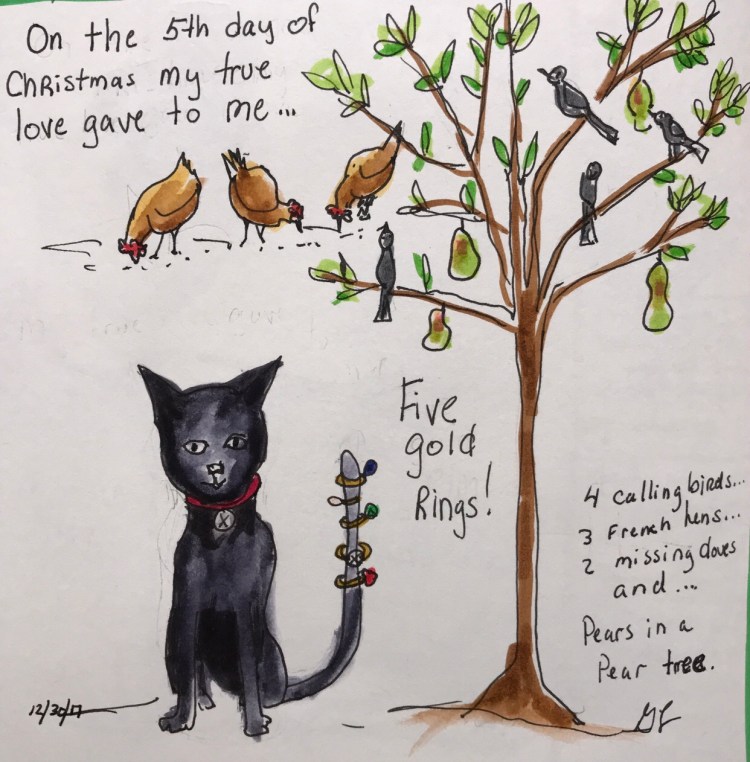 On the 5th day of
Christmas my true
love gave to me...
Five
gold
Rings!
4 calling birds...
3 French hens...
2 missing doves
and...
Pears in a
Pear tree.
X
12/30/17